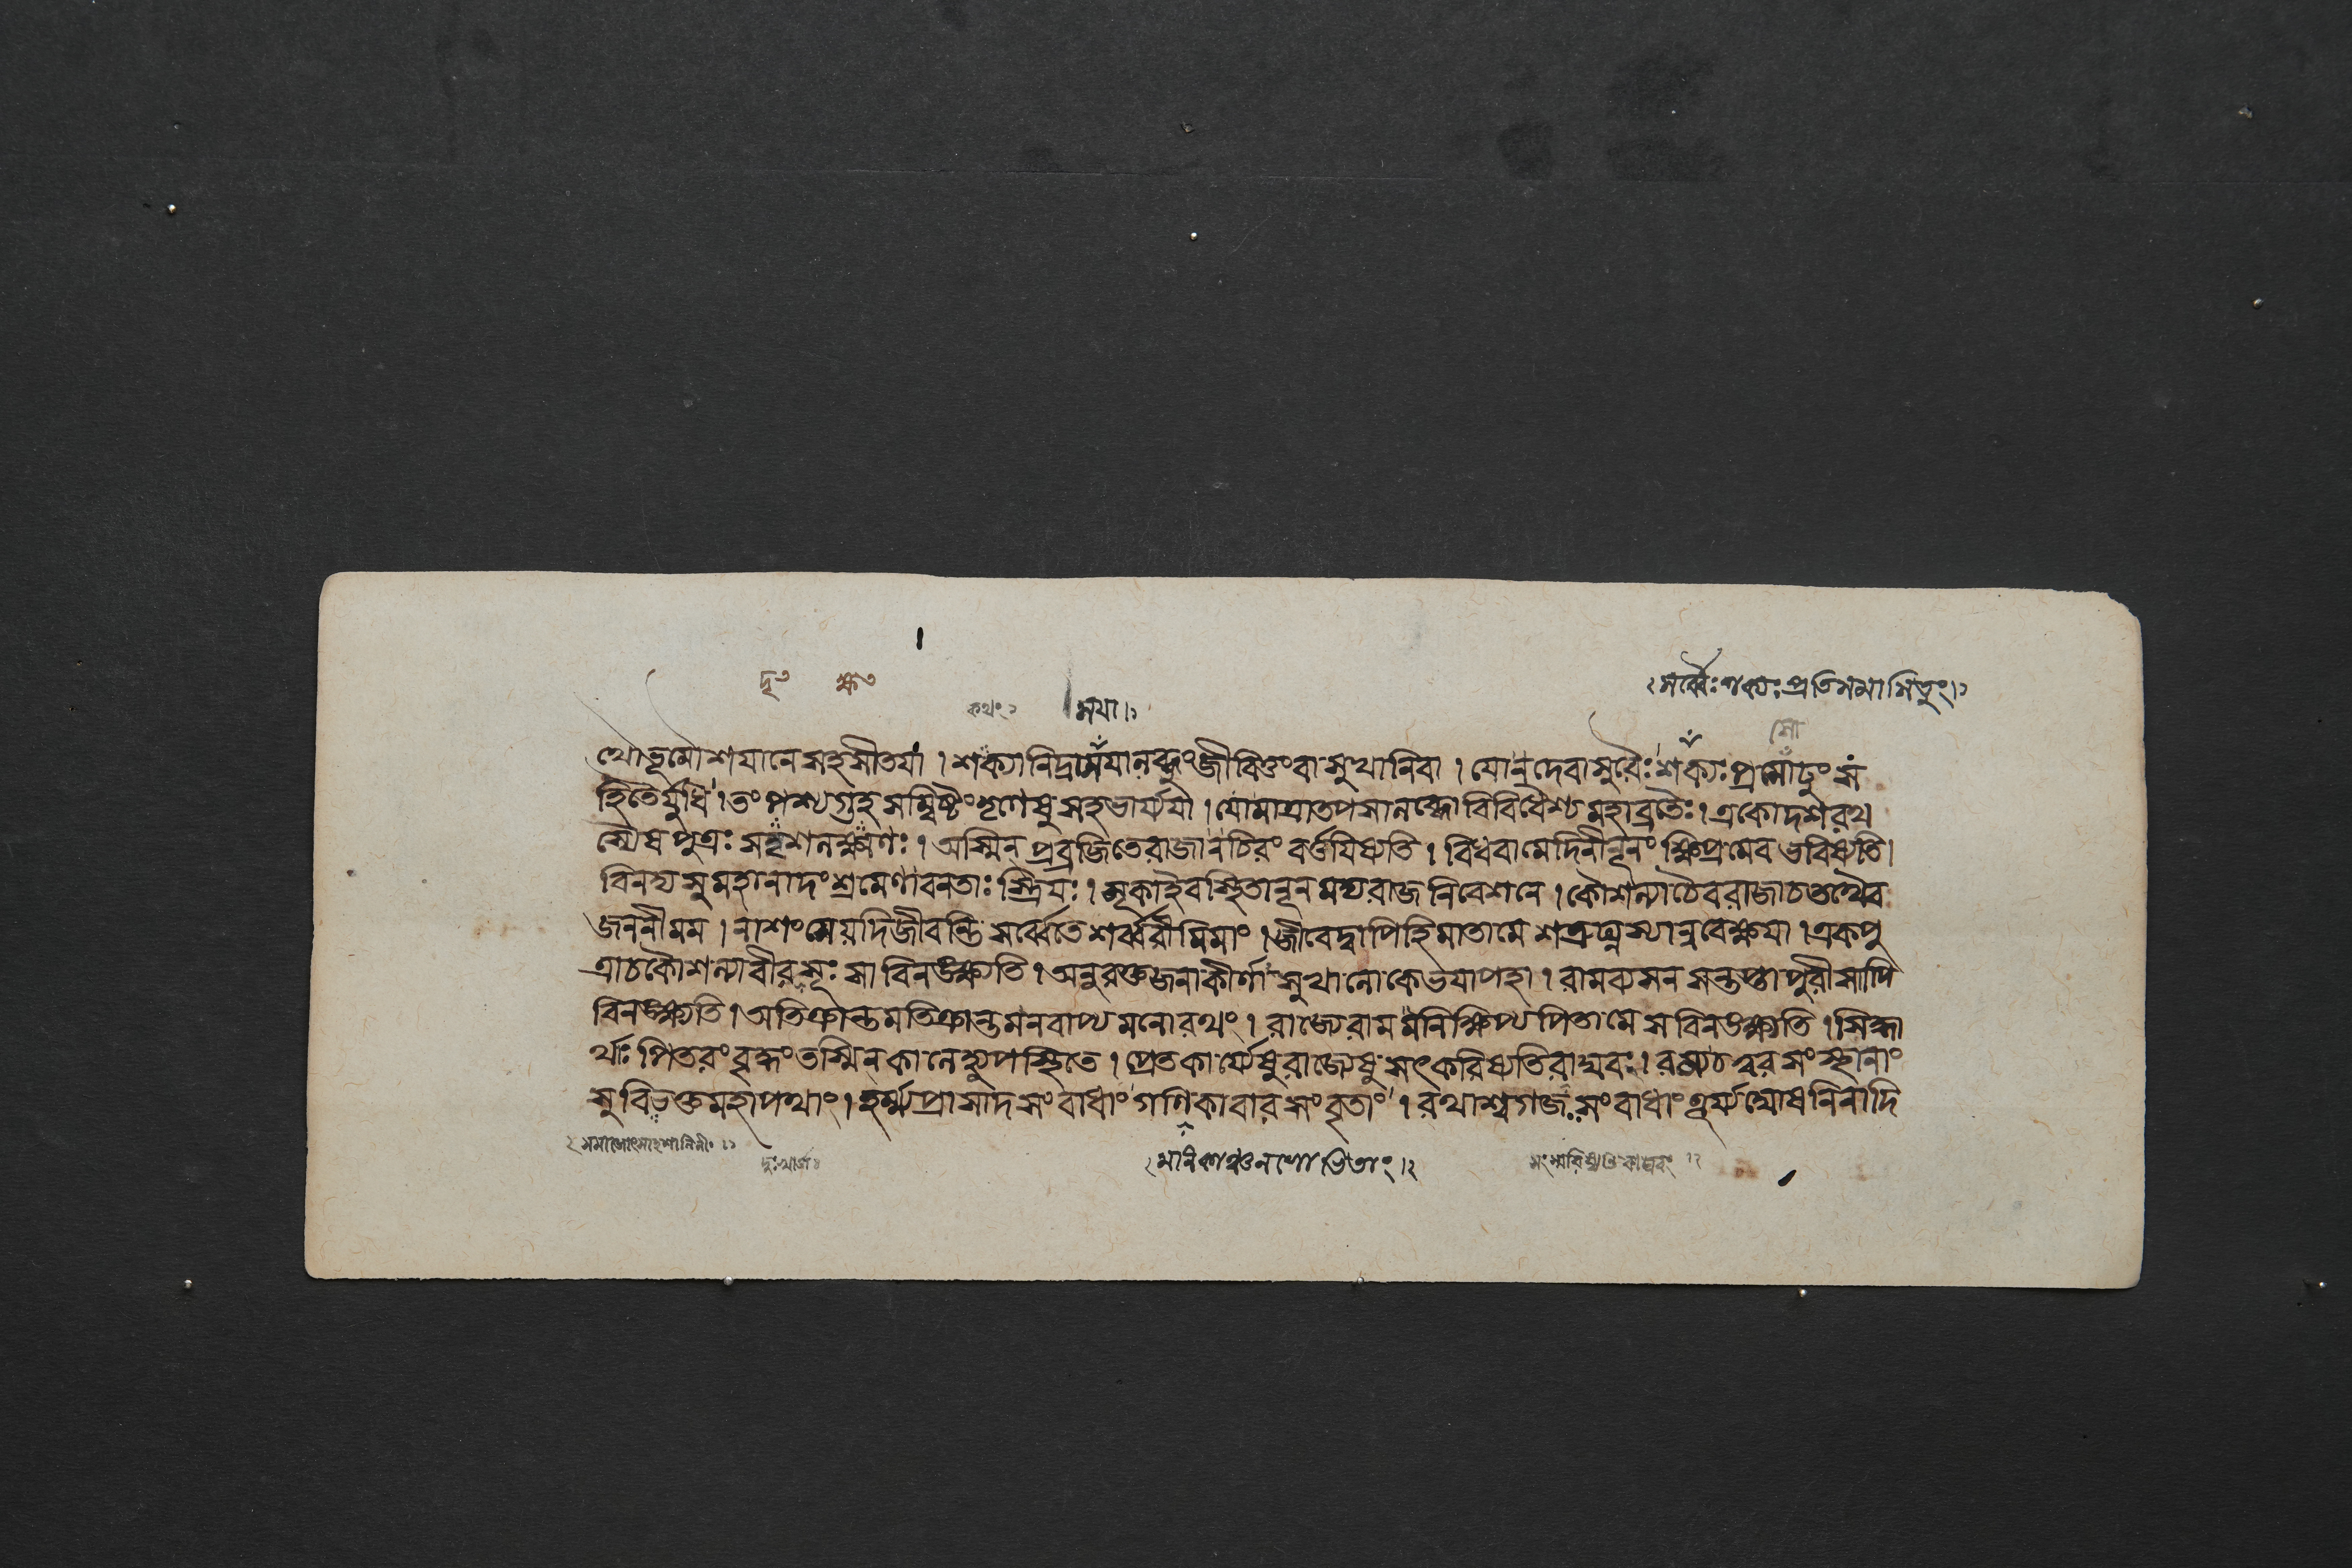 দৃ৩ ক্ষ৩
সর্ব্বৈঃশক্যঃপ্রতিসমাসিতুং।
কথং
মযা।
সো
ত্থৌভূমৌশযানেসহসীতযা । শক্যানিদ্রামযালব্ধুংজীবিতুংবাসুখানিবা । যোনদেবাসুরৈঃশক্যঃপ্রসোঢুংসং
হিতৈর্যুধি । তংপশ্যগুহসম্বিষ্টংতৃণেষুসহভার্য্যযা । যোমাত্রাতপসালব্ধোবিবিধৈশ্চমহাব্রতৈঃ । একোদশরথ
স্যৈষপুত্রঃসদৃশলক্ষণঃ । অস্মিন্প্রব্রজিতেরাজানচিরংবর্ত্তযিষ্যতি । বিধবামেদিনীনূনংক্ষিপ্রমেবভবিষ্যতি ।
বিনদ্যসুমহানাদংশ্রমেণাবনতাঃস্ত্রিযঃ । মূকাইবস্থিতানূনমদ্যরাজনিবেশনে । কৌশল্যাচৈবরাজাচতথৈব
জননীমম । নাশংসেযদিজীবন্তিসর্ব্বেতেশর্ব্বরীমিমাং । জীবেদ্বাপিহিমাতামেশত্রুঘ্নস্যান্ববেক্ষযা । একপু
ত্রাচকৌশল্যাবীরসূঃসাবিনঙ্ক্ষ্যতি । অনুরক্তজনাকীর্ণাসুখালোকেভযাপহা । রামব্যসনসন্তপ্তাপুরীসাপি
বিনঙ্ক্ষ্যতি । অতিক্রান্তমতিক্রান্তমনবাপ্যমনোরথং । রাজ্যেরামমনিক্ষিপ্যপিতামেসবিনঙ্ক্ষ্যতি । সিদ্ধা
র্থাঃপিতরংবৃদ্ধংতস্মিন্কালেহ্যুপস্থিতে । প্রেতকার্য্যেষুরাজ্যেষুসৎকরিষ্যতিরাঘবঃ । রম্যচত্বরসংস্থানাং
সুবিভক্তমহাপথাং । হর্ম্ম্যপ্রাসাদসংবাধাংগণিকাবারসংবৃতাং । রথাশ্বগজসংবাধাংতূর্য্যঘোষনিনাদি
সমাজোৎসাহশালিনীং
দুঃখার্ত্তঃ
মনিকাঞ্চনশোভিতাং।